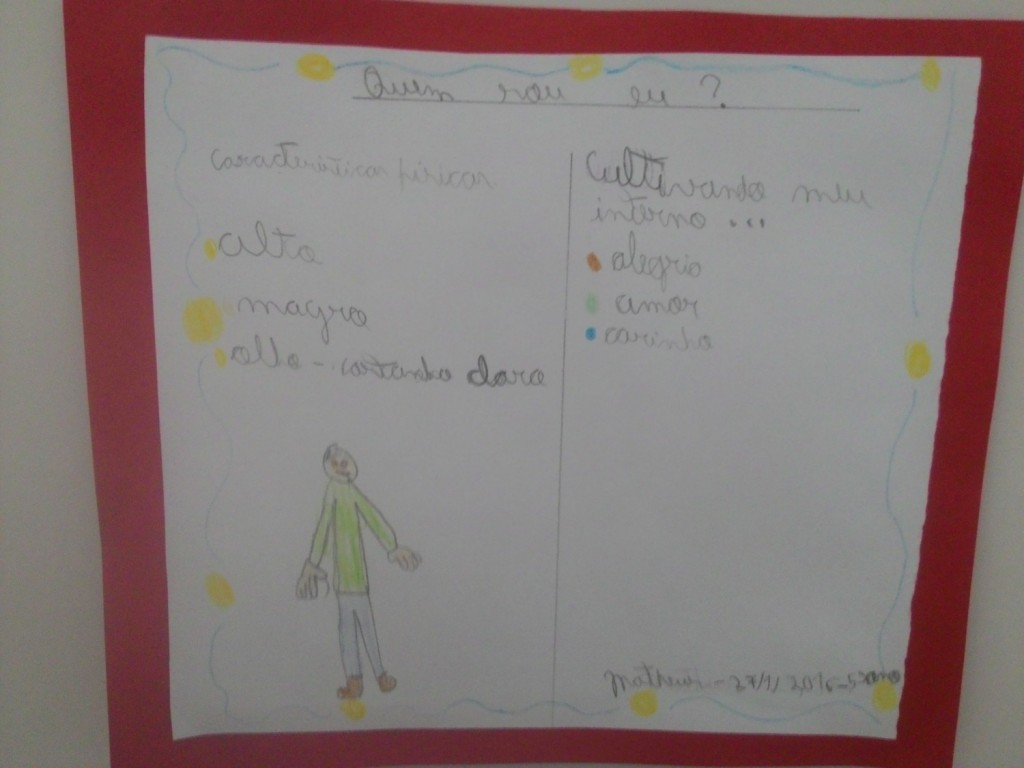 Quem sou eu ?
características físicas
alto
magro
ollo - castanho claro
Cultivando meu
interno ...
alegria
amor
carinho
Matheus - 27/1/2016-5º ano